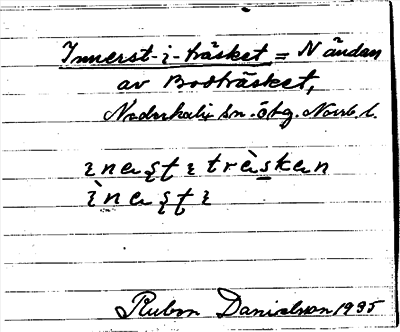 Innerst-i-träsket = N ändan
av Bodträsket,
Nederkalix sn. öbg. Norrb. l.
ɩneʂtɩ trὰsken
ɩ̀neʂtɩ
Ruben Danielson 1935